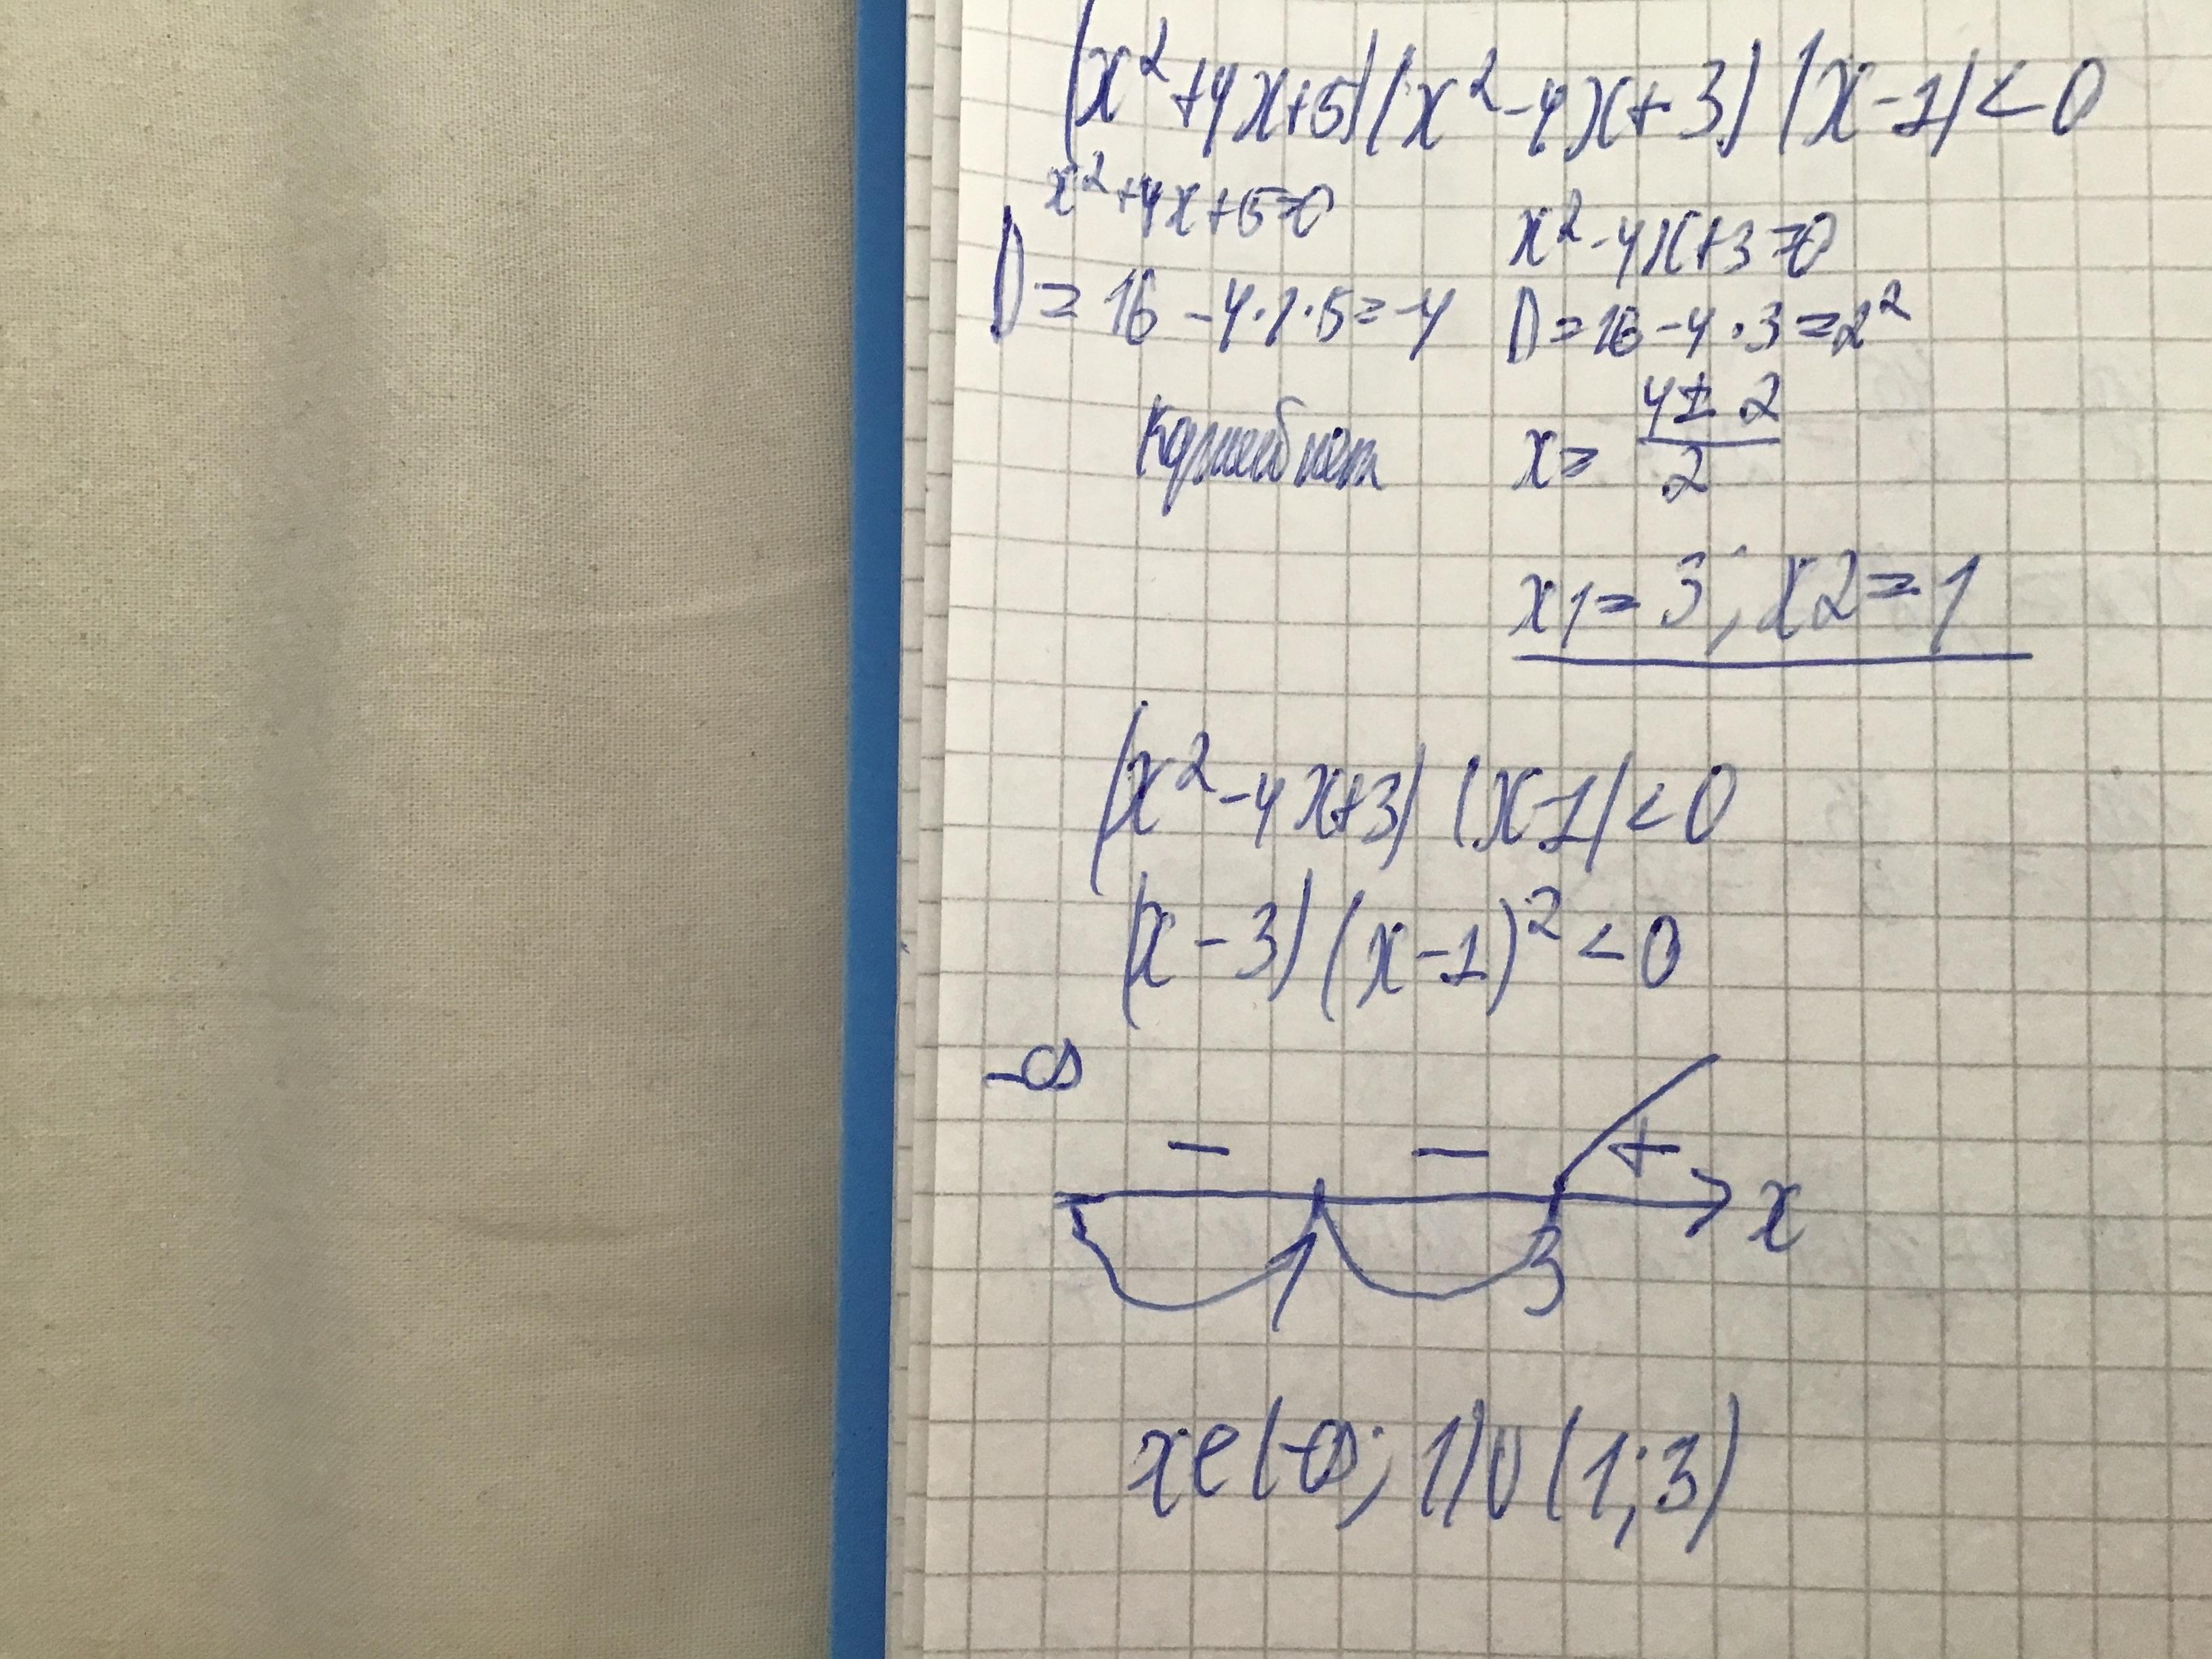 (x²+4x+5)(x²-4x+3)(x-1)<0
x²+4x+5=0
D=16-4·1·5=-4
корней нет
x²-4x+3=0
D=16-4·3=2²
x=(4±2)/2
x1=3; x2=1
(x²-4x+3)(x-1)<0
(x-3)(x-1)²<0
-∞
- - +
1 3 x
x∈(-∞;1)∪(1;3)